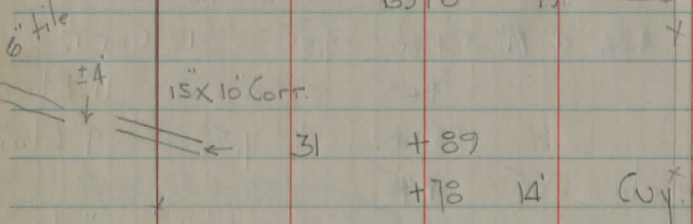 6" tile
±4'
15" x 10' Corr.
31 +89
+78 14'